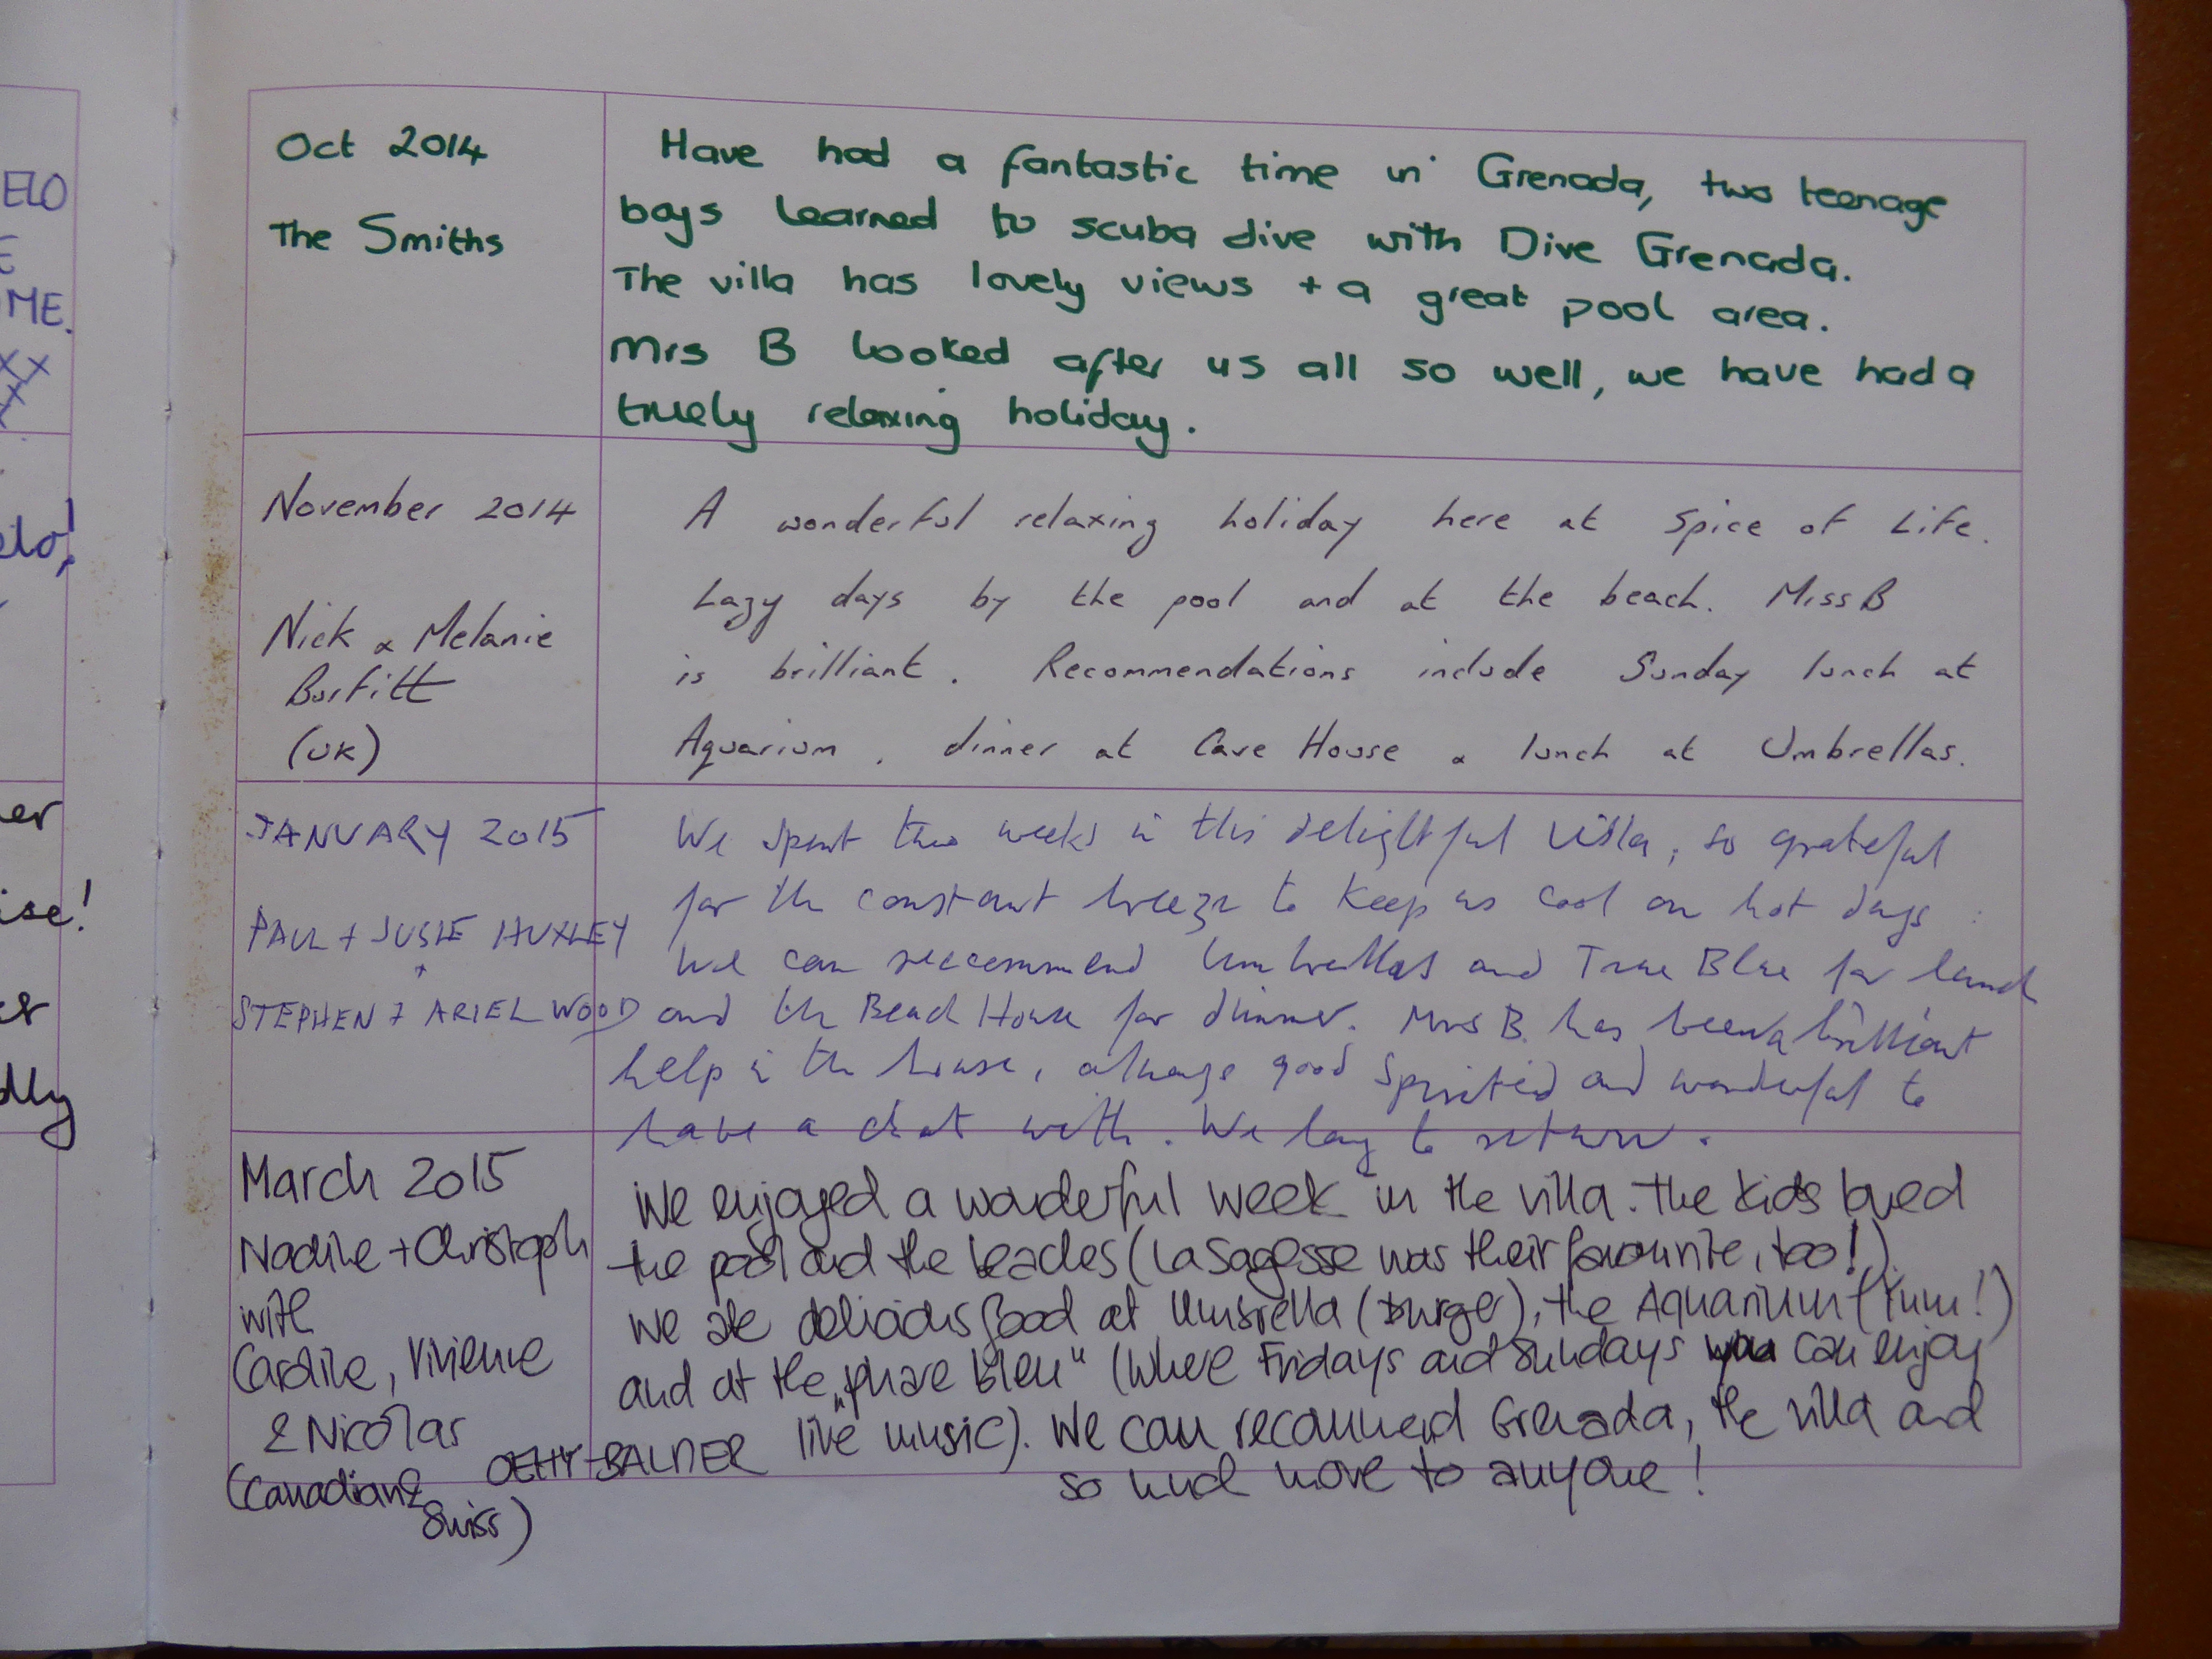 ELO
E
ME.
xx
x
x
elo!
er
ise!
er
dly
Oct 2014
The Smiths
Have had a fantastic time in Grenada, two teenage
boys learned to scuba dive with Dive Grenada.
The villa has lovely views + a great pool area.
Mrs B looked after us all so well, we have had a
truely relaxing holiday.
November 2014
Nick & Melanie
Burfitt
(UK)
A wonderful relaxing holiday here at Spice of Life.
Lazy days by the pool and at the beach. Miss B
is brilliant. Recommendations include Sunday lunch at
Aquarium, dinner at Cave House & lunch at Umbrellas.
JANUARY 2015
PAUL + SUSIE HUXLEY
+
STEPHEN + ARIEL WOOD
We spent two weeks in this delightful villa, so grateful
for the constant breeze to keep us cool on hot days.
We can reccommend Umbrellas and True Blue for lunch
and the Beach House for dinner. Mrs B. has been a brilliant
help in the house, always good spirited and wonderful to
have a chat with. We long to return.
March 2015
Nadine + Christoph
with
Caroline, Vivienne
& Nicolas
OEHY-BALDER
(Canadian &
Swiss)
We enjoyed a wonderful week in the villa. The kids loved
the pool and the beaches (La Sagesse was their favourite, too!).
We ate delicious food at Umbrella (burger), the Aquarium (Yum!)
and at the „phare bleu" (where Fridays and Sundays you can enjoy
live music). We can recommend Grenada, the villa and
so much more to anyone!